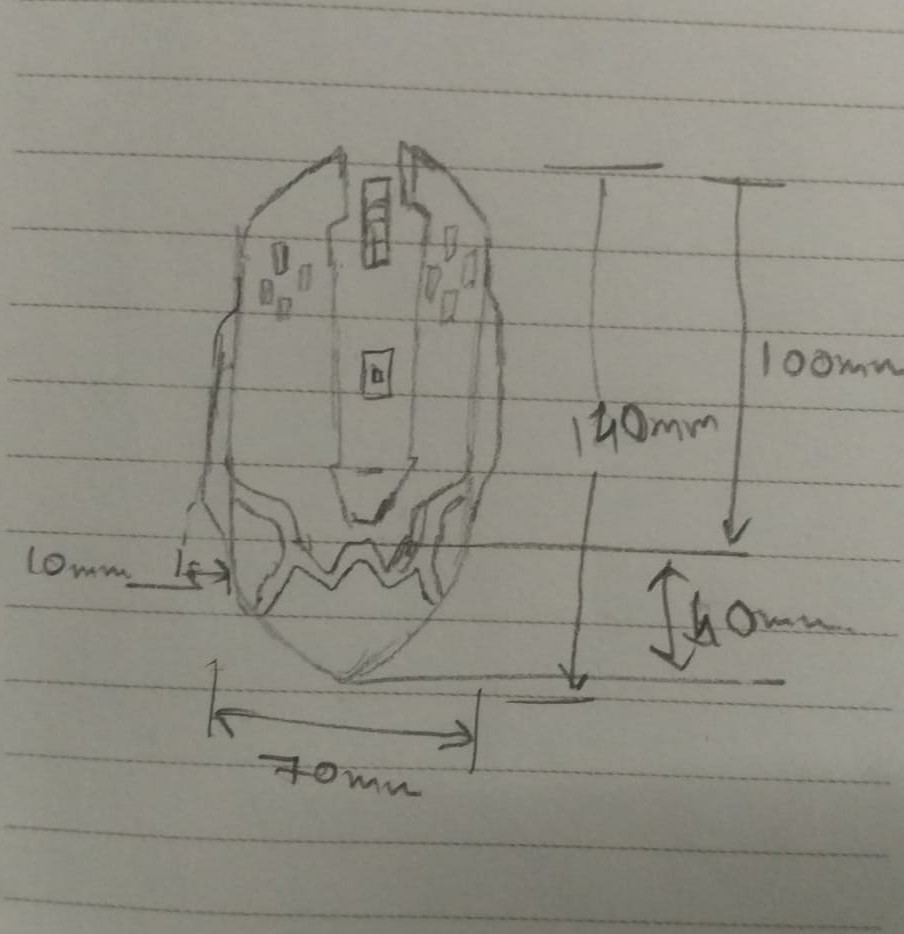 100mm
140mm
10mm
40mm
70mm